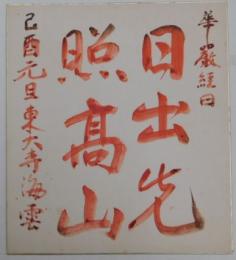 華嚴經曰
日出先
照高山
己酉元旦東大寺海雲